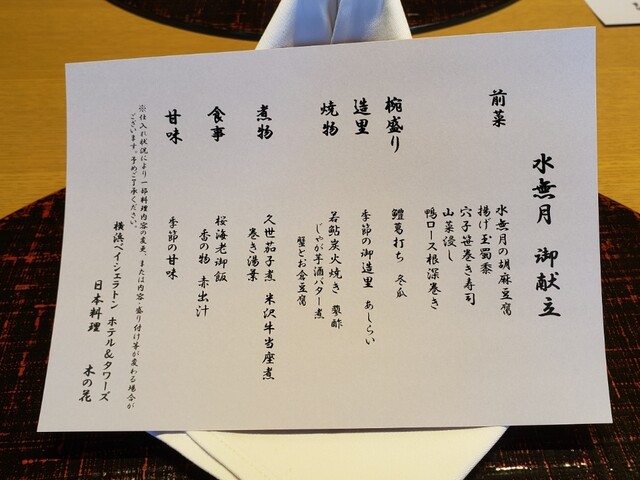 水無月 御献立
前菜
水無月の胡麻豆腐
揚げ玉蜀黍
穴子笹巻き寿司
山菜浸し
鴨ロース根深巻き
椀盛り
鱧葛打ち 冬瓜
造里
季節の御造里 あしらい
焼物
若鮎炭火焼き 蓼酢
じゃが芋酒バター煮
蟹とお倉豆腐
煮物
久世茄子煮 米沢牛当座煮
巻き湯葉
食事
桜海老御飯
香の物 赤出汁
甘味
季節の甘味
※仕入れ状況により一部料理内容の変更、または内容・盛り付け等が変わる場合が
ございます。予めご了承ください。
横浜ベイシェラトン ホテル&タワーズ
日本料理 木の花